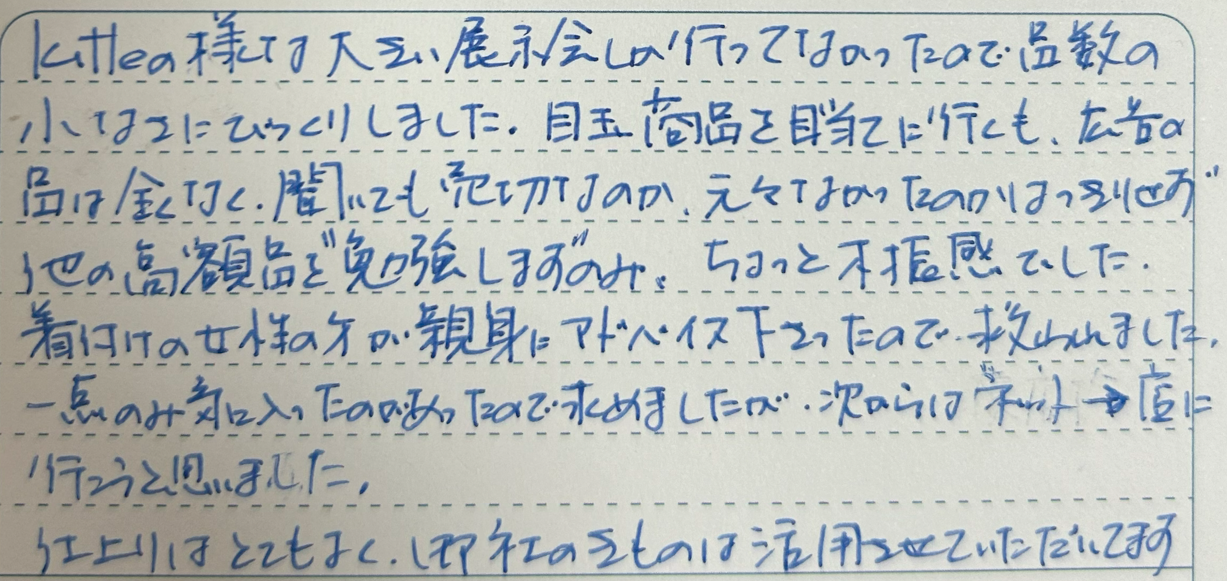 様は大きい展示会しか行ってなかったので品数の
小なさにびっくりしました。目玉商品を目当てに行くも、広告の
品は全くなく、聞いても売切なのか、元々なかったのかはっきりせず
他の高額品を"勉強します"のみ。ちょっと不振感でした。
着付けの女性の方が親身にアドバイス下さったので救われました。
一点のみ気に入ったのがあったので求めましたが、次からはネット→店に
行こうと思いました。
仕上りはとてもよく、御社のきものは活用させていただいてます